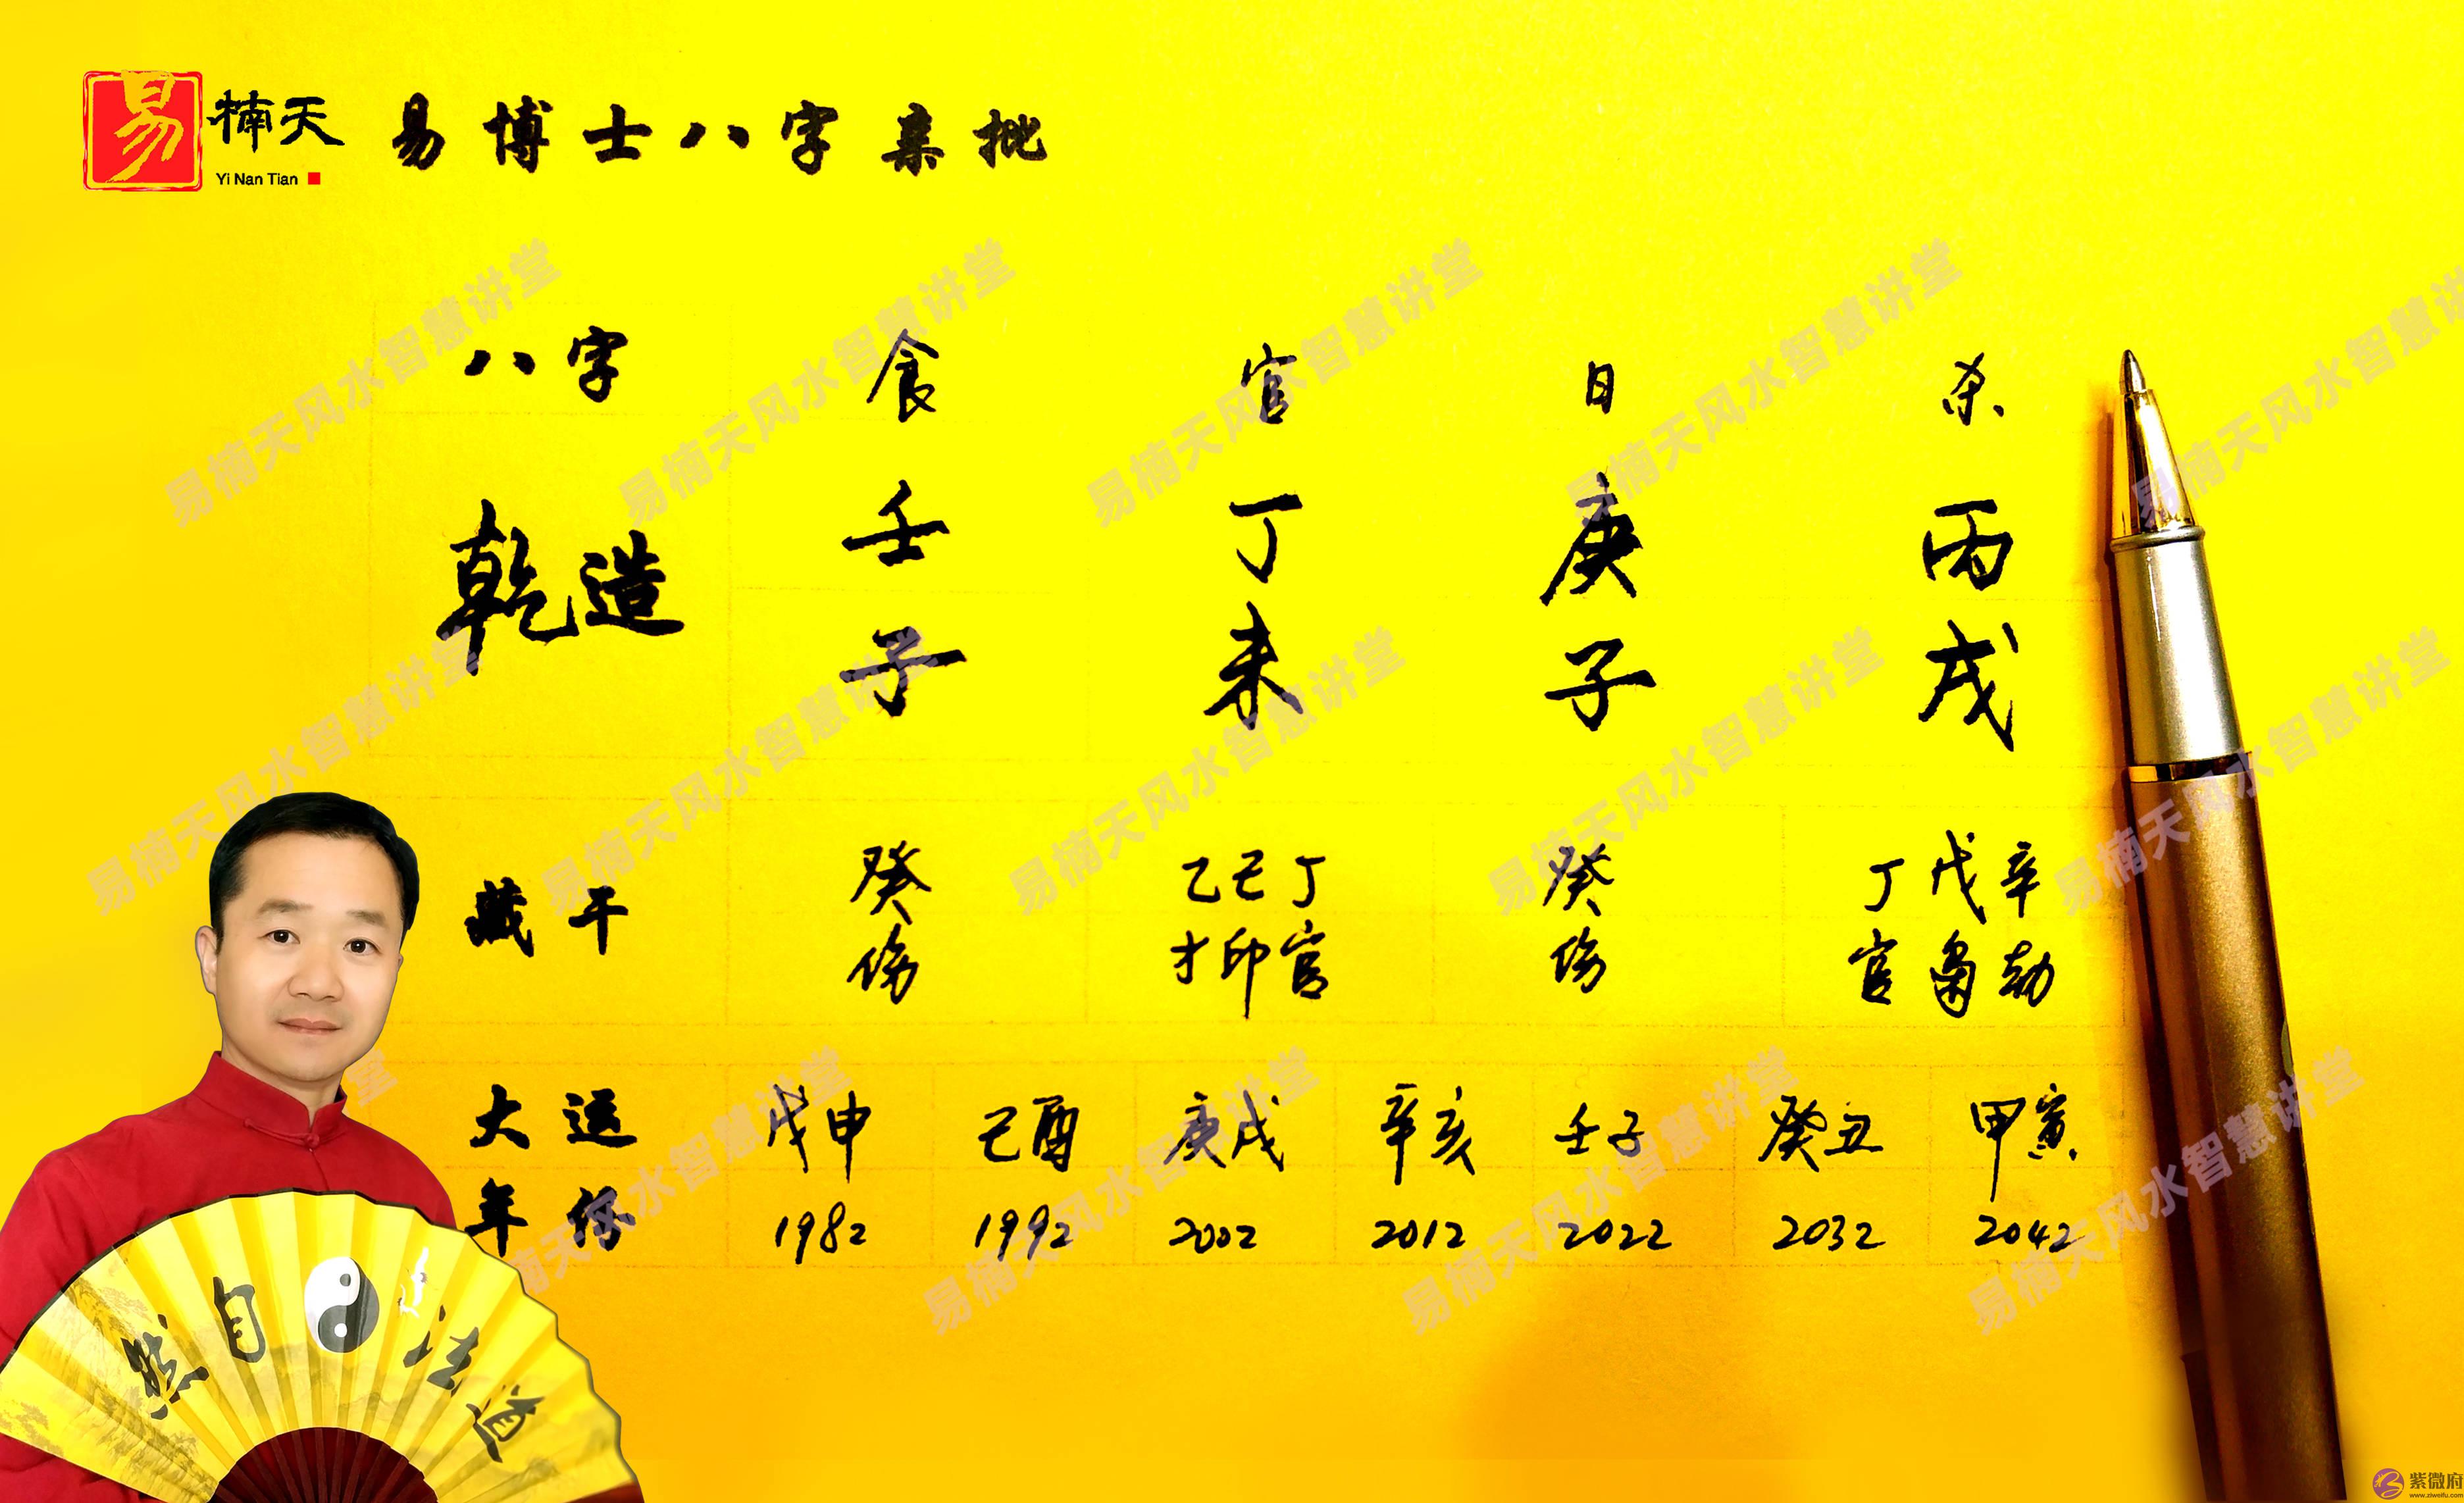 易 楠天 易博士八字亲批
Yi Nan Tian
八字 食 官 日 杀
乾造 壬 丁 庚 丙
子 未 子 戌
藏干 癸 乙己丁 癸 丁戊辛
伤 才印官 伤 官枭劫
大运 戊申 己酉 庚戌 辛亥 壬子 癸丑 甲寅
年份 1982 1992 2002 2012 2022 2032 2042
然自法道
易楠天风水智慧讲堂
紫微府
www.ziweifu.com